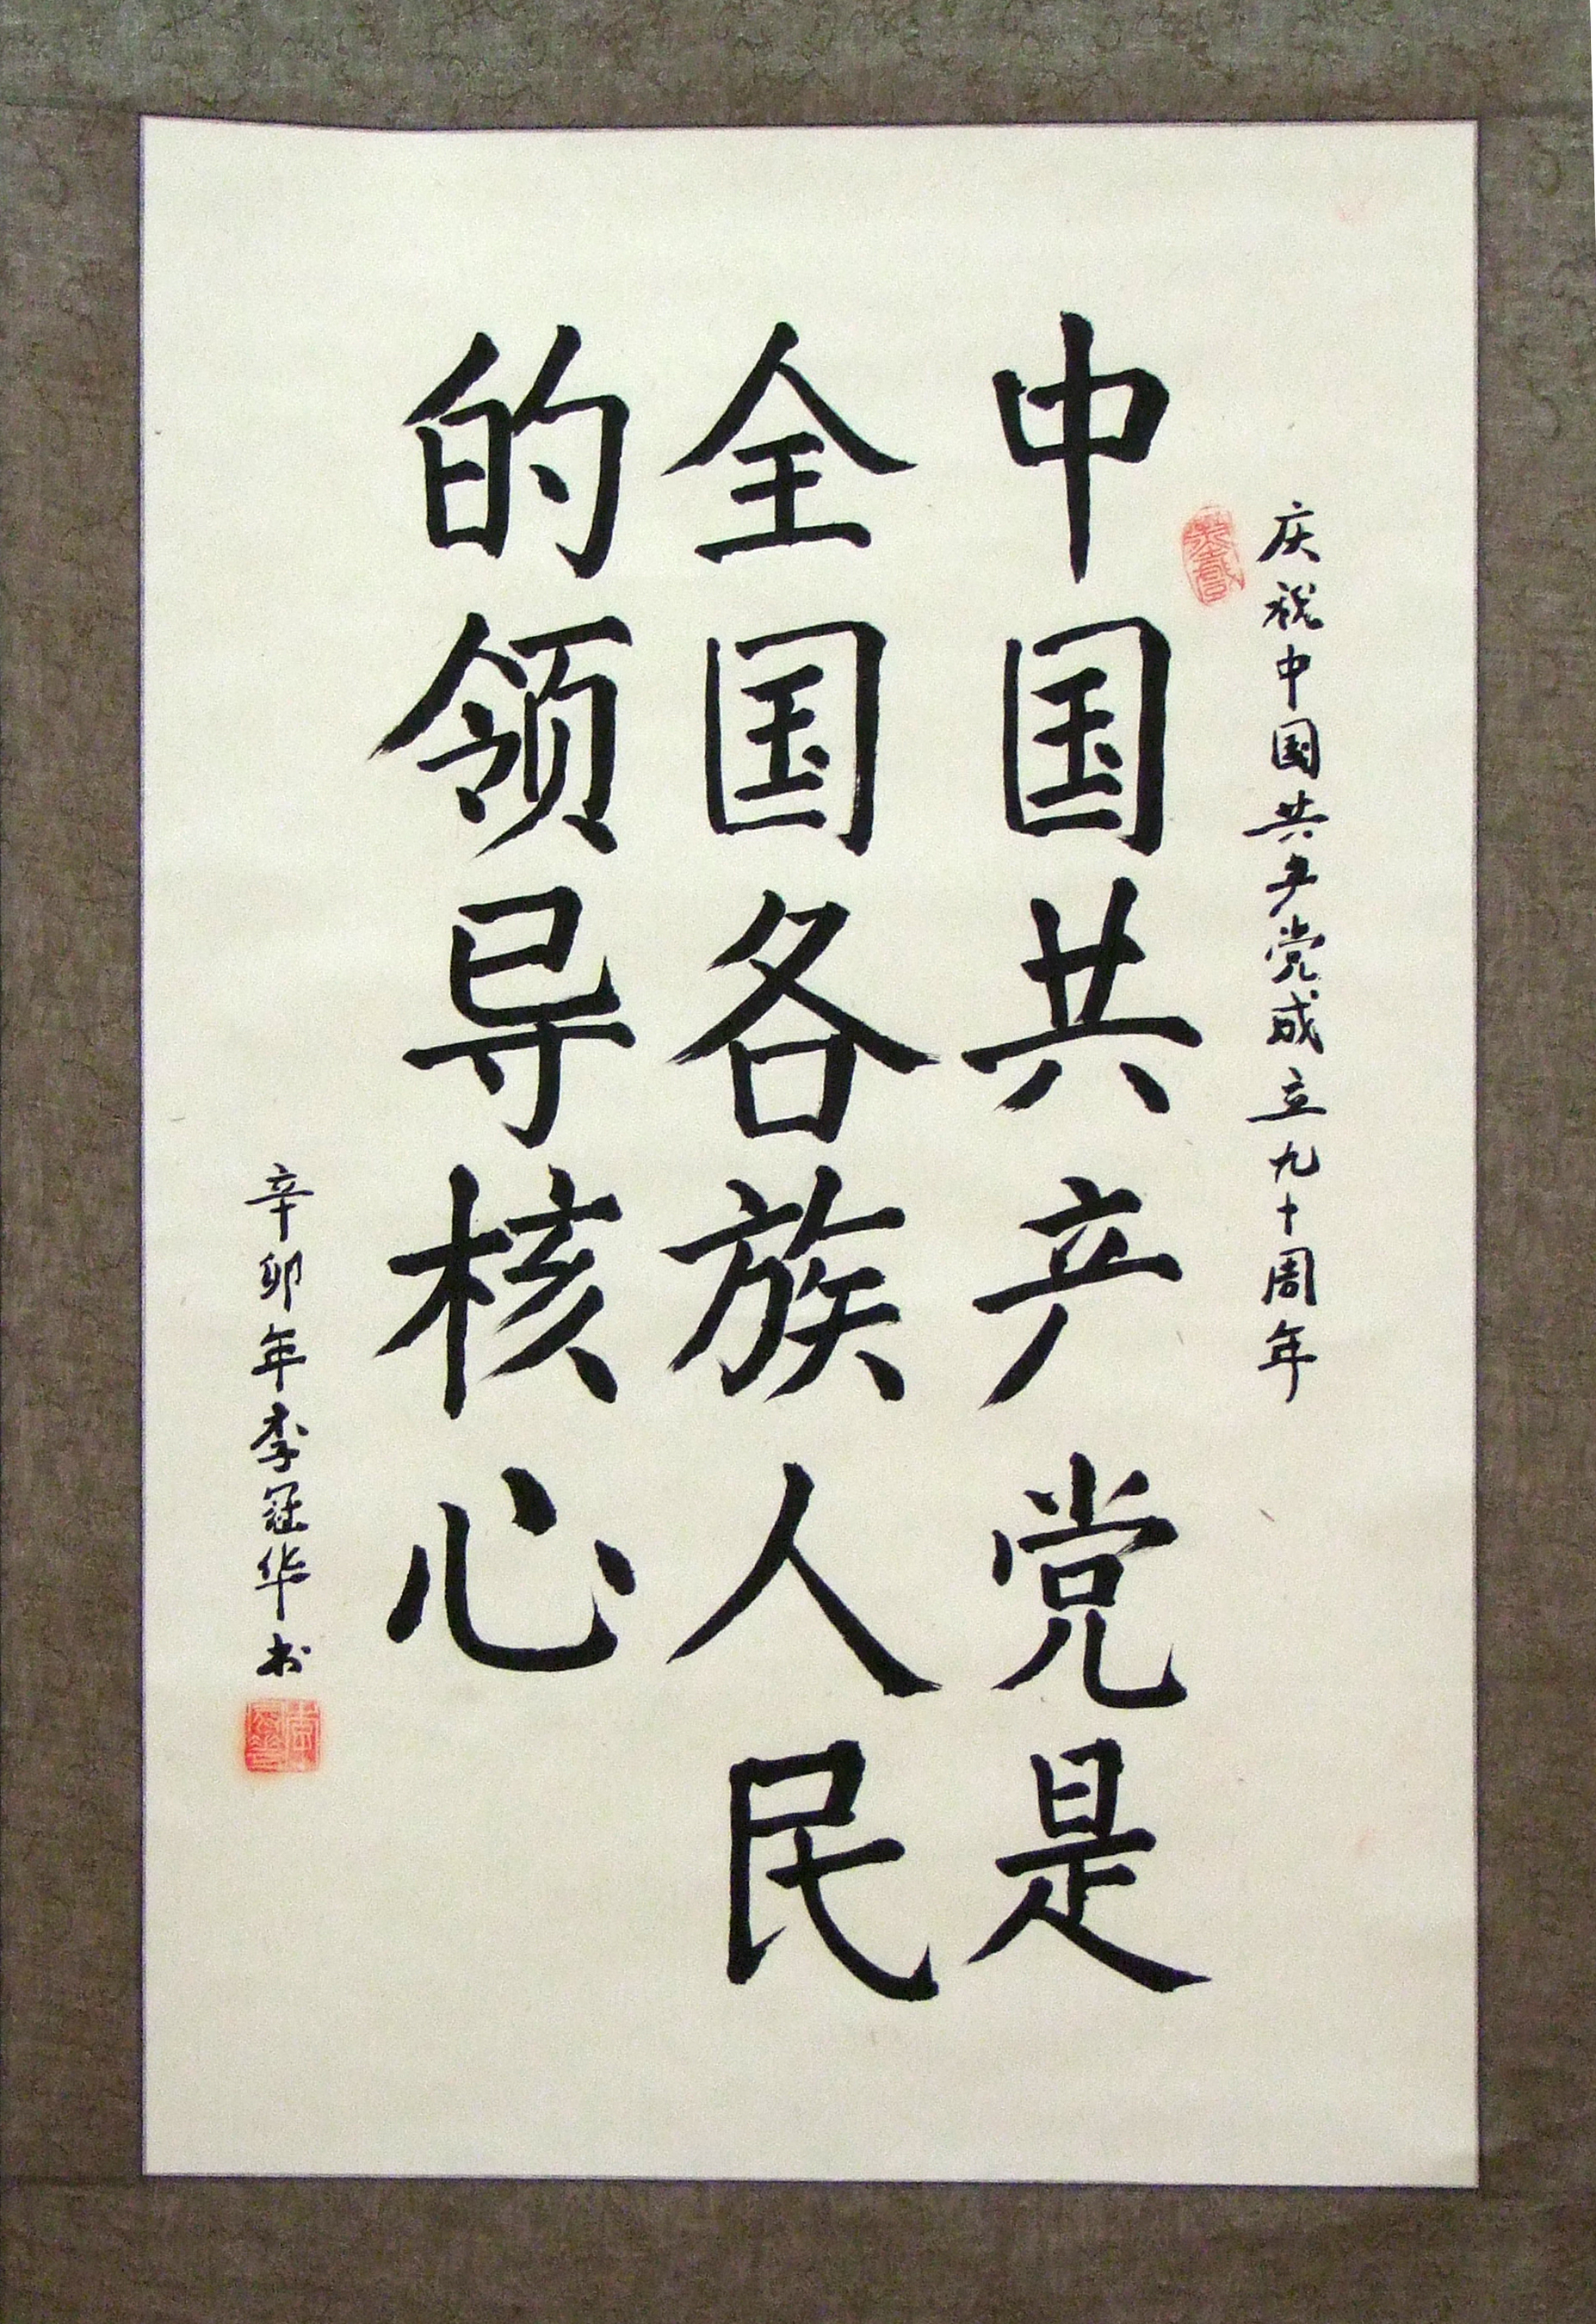 庆祝中国共产党成立九十周年
中国共产党是
全国各族人民
的领导核心
辛卯年李冠华书